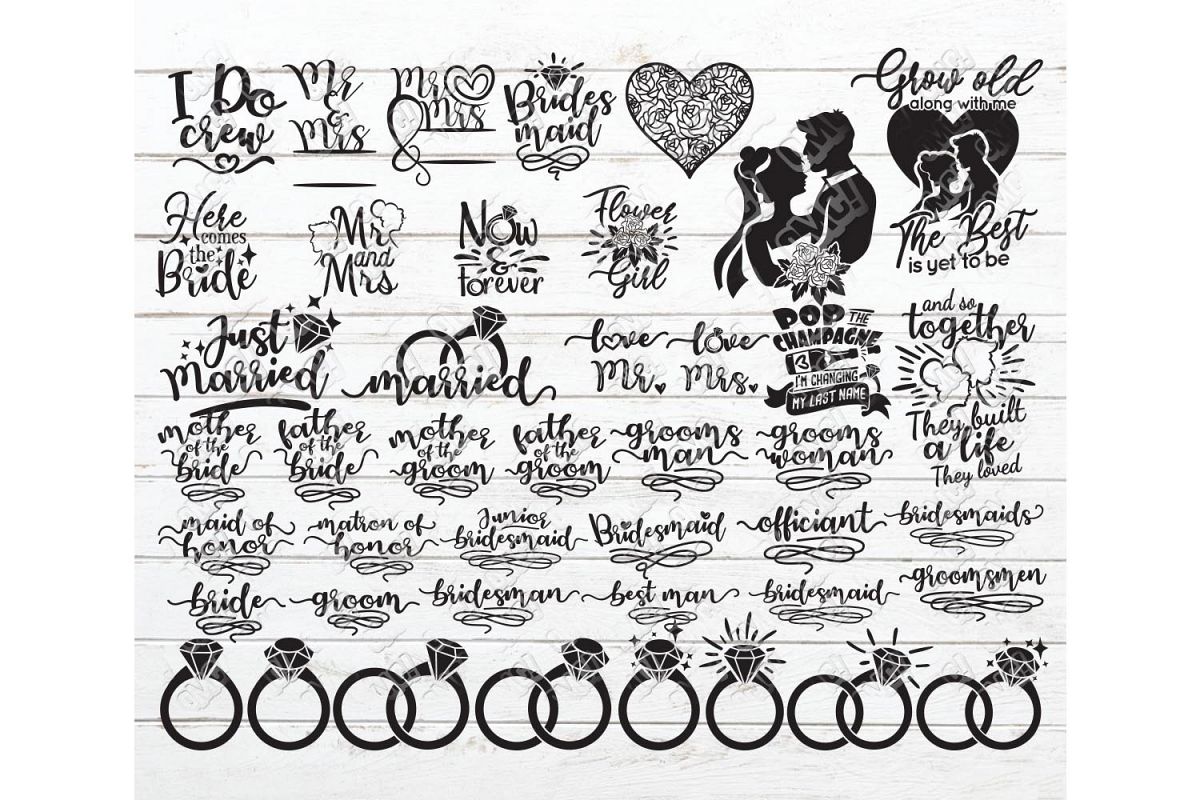 I Do
crew
Mr
&
Mrs
Mr
Mrs
Brides
maid
Grow old
along with me
The Best
is yet to be
Here
comes
the
Bride
Mr
and
Mrs
Now
&
Forever
Flower
Girl
Just
Married
married
love
Mr.
love
Mrs.
POP THE
CHAMPAGNE
I'M CHANGING
MY LAST NAME
and so
together
They built
a life
They loved
mother
of the
bride
father
of the
bride
mother
of the
groom
father
of the
groom
grooms
man
grooms
woman
maid of
honor
matron of
honor
Junior
bridesmaid
Bridesmaid
officiant
bridesmaids
bride
groom
bridesman
best man
bridesmaid
groomsmen